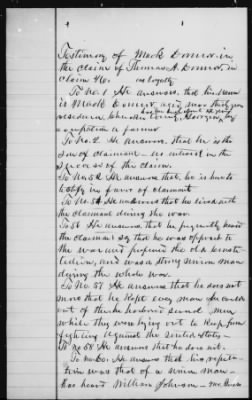 Testimony of Mack Donner in
the claim of Thomas A. Donner, in
claim 460. as loyalty
To No. 1 He answers, that his name
is Mack Donner, aged more thirty years
residence, County, Georgia, by
occupation a farmer
To No. 2 He answers, that he is the
son of claimant no interest in the
success of the claim.
To No. 52 He answers that, he is here to
testify in favor of claimant
To No. 54 He answers that he lived with
the claimant during the war.
To 56 He answers, that he frequently heard
the claimant say that he was opposed to
the war and prefered the old
and was a strong union man
during the whole war.
To No. 57 He answers that he does not
more that he kept every man he could
out of the he harbored several men
while they were lying out to keep from
fighting against the United States—
To No 58 He answers that he does not.
To No. 60. He answers that his reputa-
tion was that of a union man—
Has heard William Johnson—